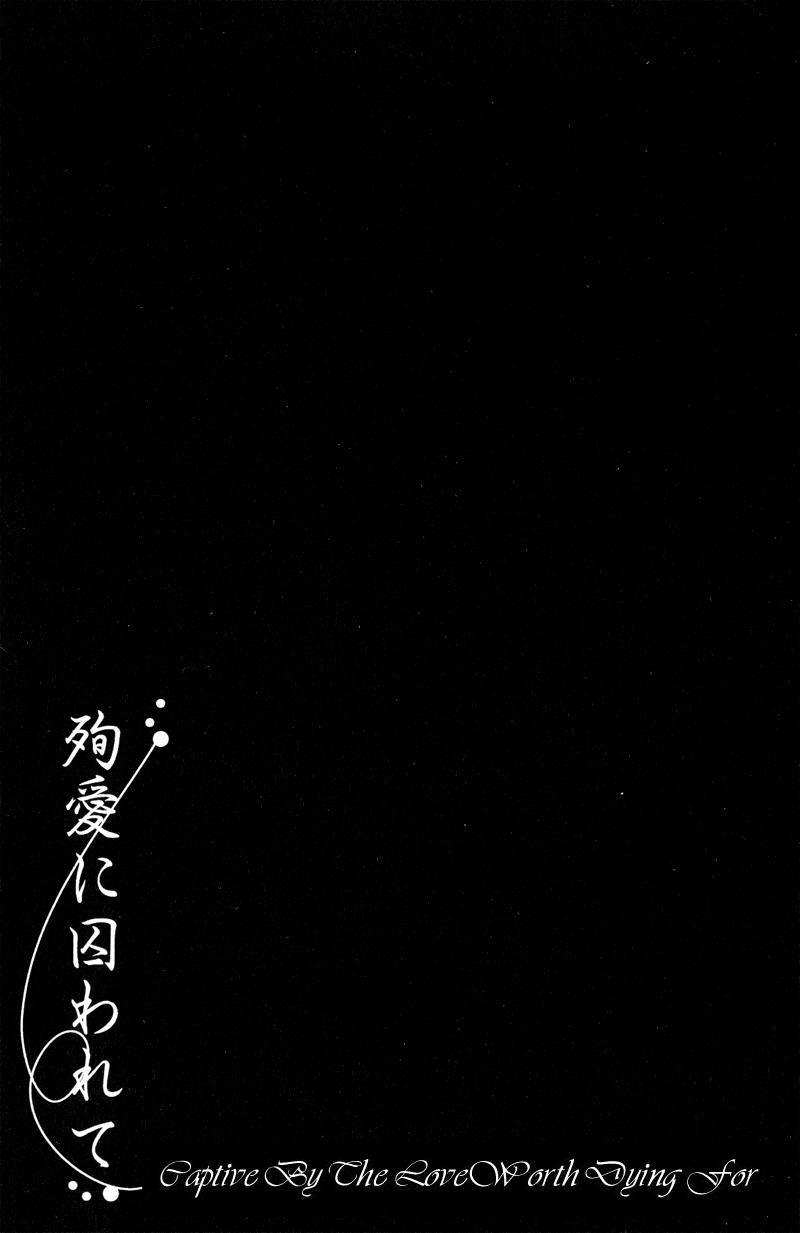 殉愛に囚われて
Captive By The Love Worth Dying For